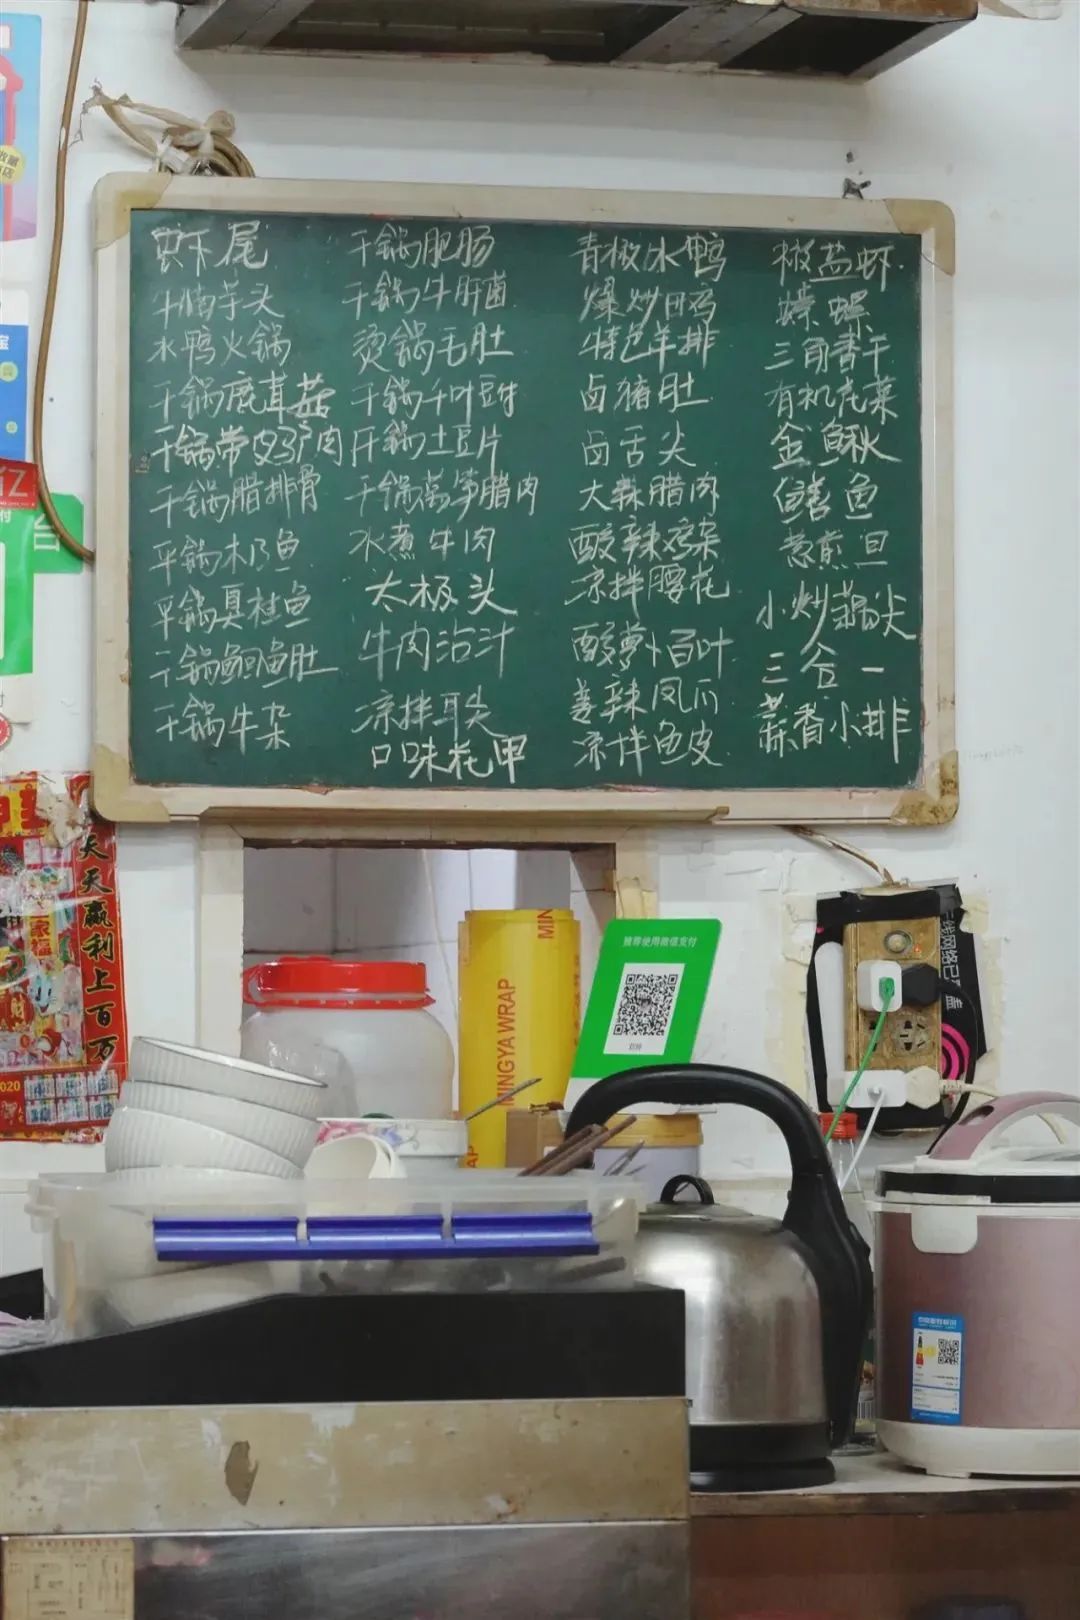 虾尾
牛腩芋头
水鸭火锅
干锅鹿茸菇
干锅带皮驴肉
干锅腊排骨
干锅木乃鱼
干锅臭桂鱼
干锅鮰鱼肚
干锅牛杂
干锅肥肠
干锅牛肝菌
烫锅毛肚
干锅千叶豆付
干锅土豆片
干锅莴笋腊肉
水煮牛肉
太极头
牛肉沾汁
凉拌耳尖
口味花甲
青椒水鸭
爆炒田鸡
特色羊排
卤猪肚
卤舌尖
大蒜腊肉
酸辣鸡杂
凉拌腰花
酸萝卜百叶
姜辣凤爪
凉拌鱼皮
椒盐虾
嗦螺
三角香干
有机花菜
金鱼秋
鳝鱼
葱煎旦
小炒藕尖
三合一
蒜香小排
天天赢利上百万
2020
MINGYA WRAP
推荐使用微信支付